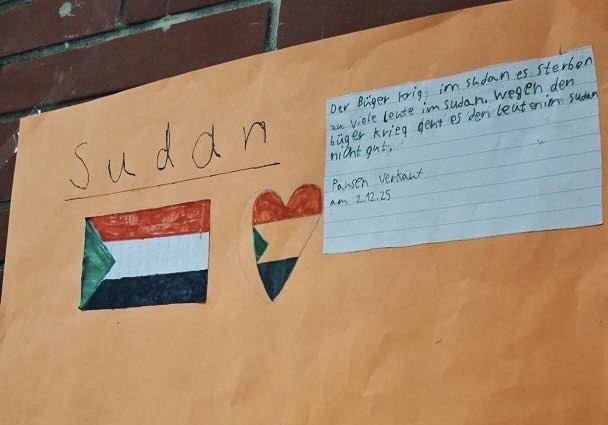 Sudan
Der Büger krig im sudan es sterben
zu viele leute im sudan. wegen den
büger krieg geht es den leuten im sudan
nicht gut.
Pausen verkauf
am 2.12.25